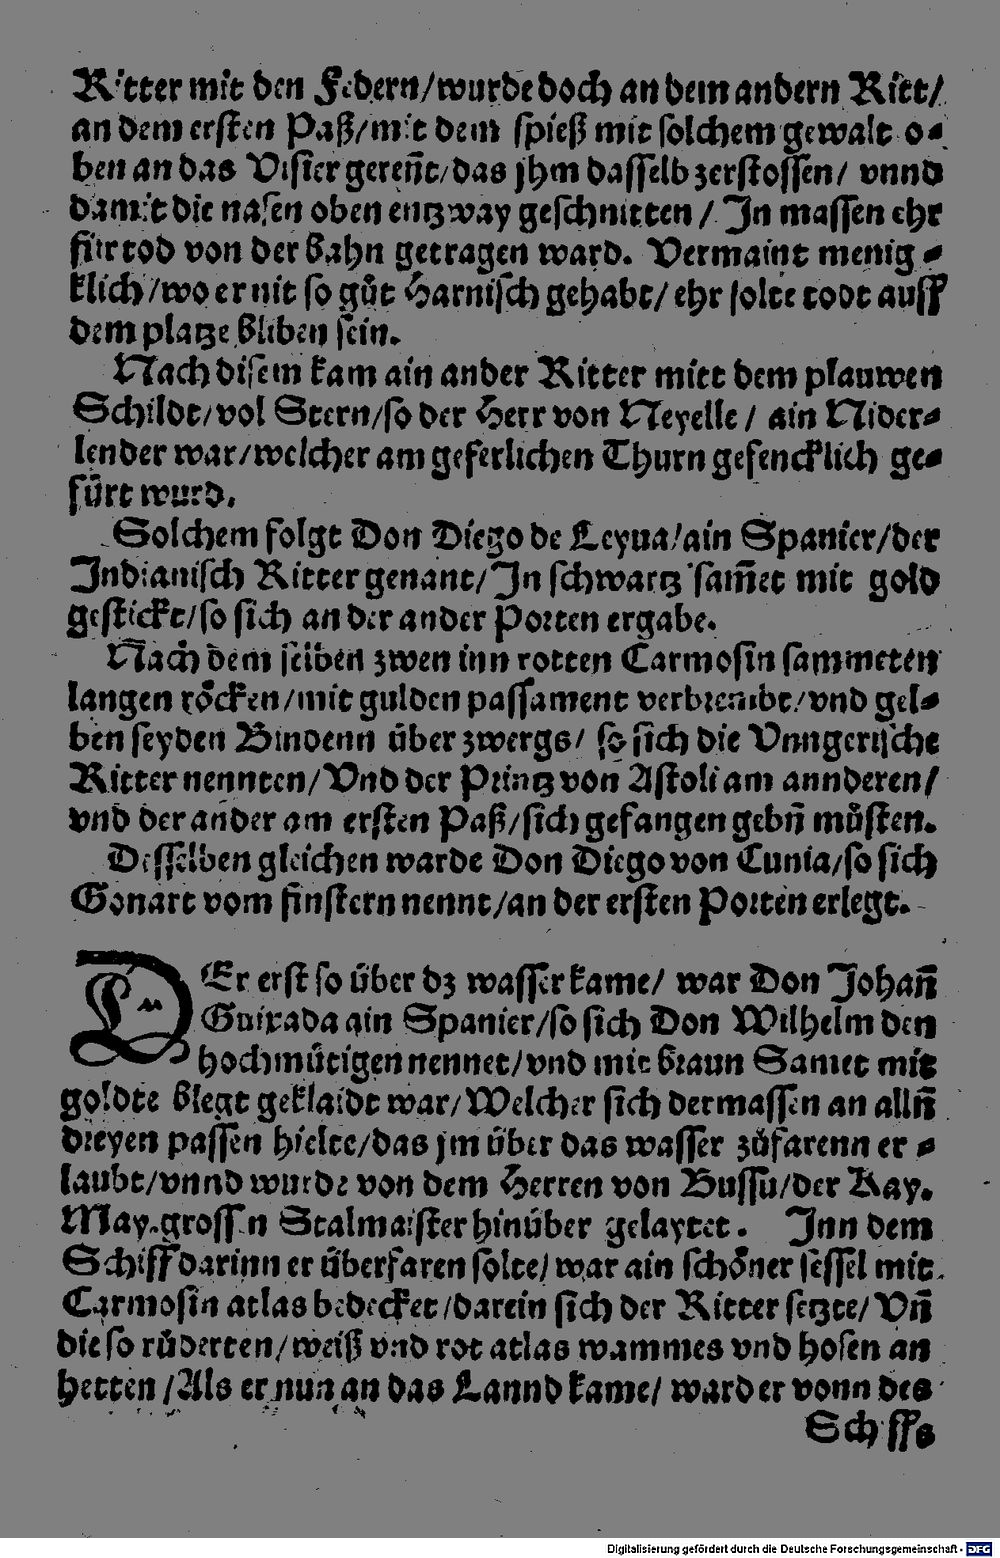 Ritter mit den Federn/wurde doch an dem andern Ritt/
an dem ersten Paß/mit dem spieß mit solchem gewalt o⸗
ben an das Visier gereñt/das jhm dasselb zerstossen/ vnnd
damit die nasen oben entzway geschnitten / Jn massen ehr
für tod von der bahn getragen ward. Vermaint menig⸗
klich/wo er nit so gůt Harnisch gehabt/ ehr solte todt auff
dem platze bliben sein.
Nach disem kam ain ander Ritter mitt dem plauwen
Schildt/vol Stern/so der Herr von Neyelle / ain Nider⸗
lender war/welcher am geferlichen Thurn gefencklich ge⸗
fürt wurd.
Solchem folgt Don Diego de Leyua/ain Spanier/der
Jndianisch Ritter genant/Jn schwartz sam̃et mit gold
gestickt/so sich an der ander Porten ergabe.
Nach dem seiben zwen inn rotten Carmosin sammeten
langen röcken/mit gulden passament verbrembt/vnd gel⸗
ben seyden Bindenn über zwergs/ so sich die Vnngerische
Ritter nennten/Vnd der Printz von Astoli am annderen/
vnd der ander am ersten Paß/sich gefangen gebñ můsten.
Desselben gleichen warde Don Diego von Cunia/so sich
Gonart vom finstern nennt/an der ersten Porten erlegt.
DEr erst so über dz wasser kame/ war Don Johañ
Guixada ain Spanier/so sich Don Wilhelm den
hochmütigen nennet/vnd mit braun Samet mit
goldte blegt geklaidt war/Welcher sich dermassen an allñ
dreyen passen hielte/das jm über das wasser zůfarenn er⸗
laubt/vnnd wurde von dem Herren von Bussu/der Kay.
May.grossen Stalmaister hinüber gelaytet. Jnn dem
Schiff darinn er überfaren solte/ war ain schöner sessel mit
Carmosin atlas bedecket/darein sich der Ritter setzte/ Vñ
die so růderten/weiß vnd rot atlas wammes vnd hosen an
hetten /Als er nun an das Lannd kame/ ward er vonn des
Schiffs
Digitalisierung gefördert durch die Deutsche Forschungsgemeinschaft - DFG